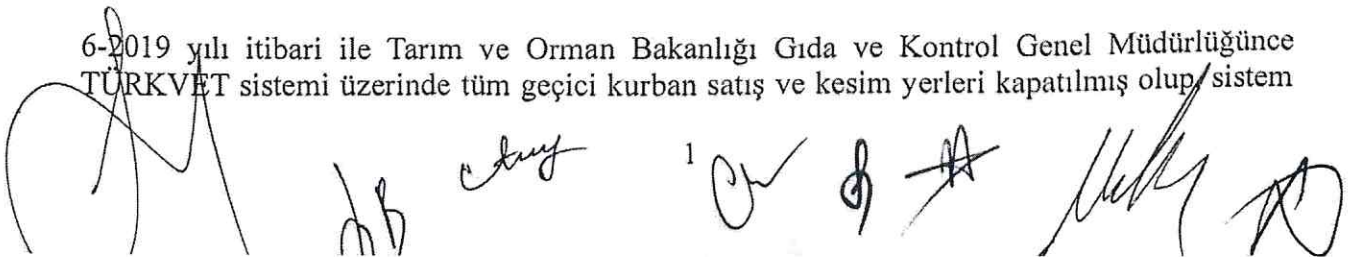 6-2019 yılı itibari ile Tarım ve Orman Bakanlığı Gıda ve Kontrol Genel Müdürlüğünce
TÜRKVET sistemi üzerinde tüm geçici kurban satış ve kesim yerleri kapatılmış olup, sistem
1